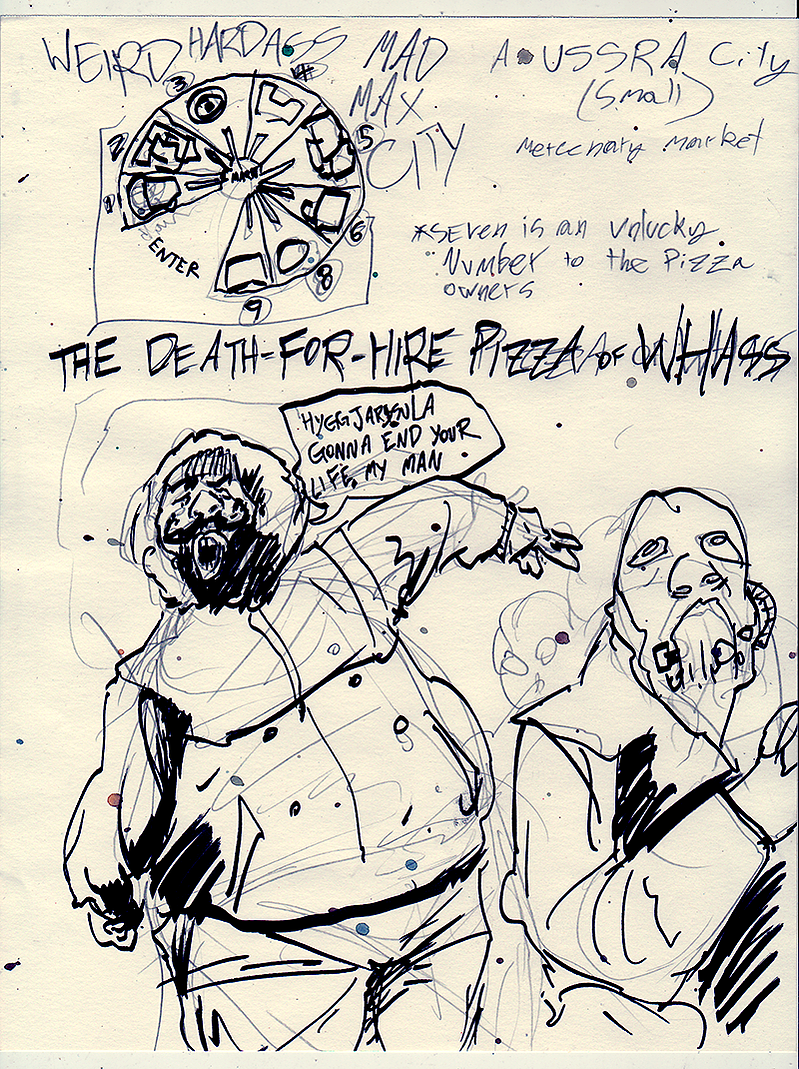 WEIRD HARDASS
MAD
MAX
CITY
A USSRA City
(Small)
mercenary market
*SEVEN is an unlucky
Number to the Pizza
owners
1
2
3
4
5
6
8
9
ENTER
THE DEATH-FOR-HIRE PIZZA OF WHASS
GONNA END YOUR
LIFE, MY MAN